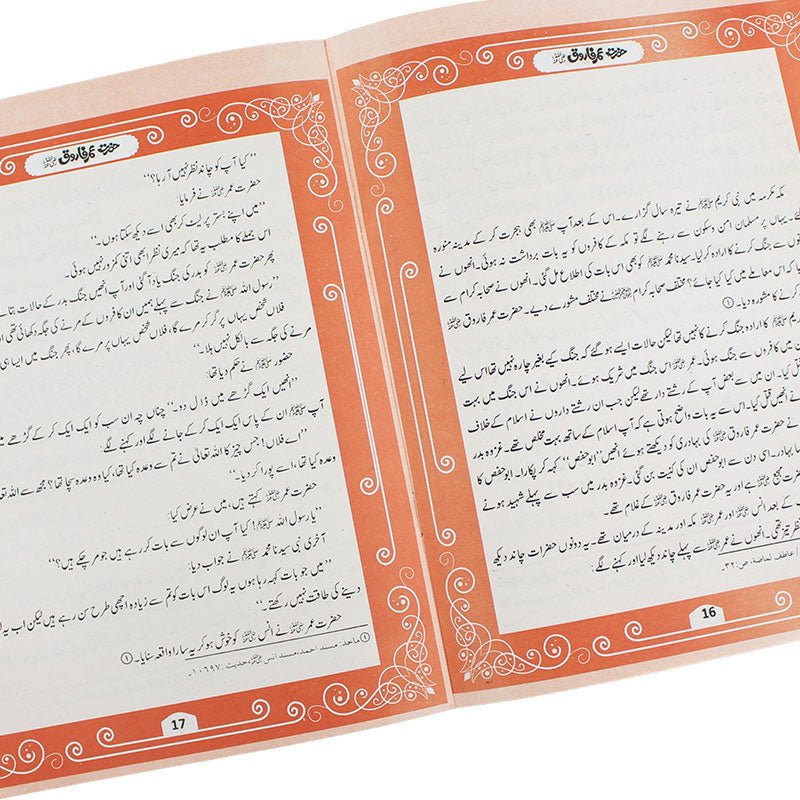 حضرت عمر فاروق رضی اللہ عنہ
مکہ مکرمہ میں نبی کریم ﷺ نے تیرہ سال گزارے۔ اس کے بعد آپ ﷺ بھی ہجرت کر کے مدینہ منورہ
یہاں پر مسلمان امن و سکون سے رہنے لگے تو مکہ کے کافروں کو یہ بات برداشت نہ ہوئی۔ انھوں نے
سے جنگ کرنے کا ارادہ کر لیا۔ سیدنا محمد ﷺ کو بھی اس بات کی اطلاع مل گئی۔ انھوں نے صحابہ کرام سے
کہ اس معاملے میں کیا کیا جائے؟ مختلف صحابہ کرام نے مختلف مشورے دیے۔ حضرت عمر فاروق رضی اللہ عنہ
کرنے کا مشورہ دیا۔ ①
کریم ﷺ کا ارادہ جنگ کرنے کا نہیں تھا لیکن حالات ایسے ہو گئے کہ جنگ کے بغیر چارہ نہیں تھا اس لیے
میں کافروں سے جنگ ہوئی۔ عمر رضی اللہ عنہ اس جنگ میں شریک ہوئے۔ انھوں نے اس جنگ میں بہت
قتل کیا۔ ان میں سے بعض آپ کے رشتے دار تھے لیکن جب ان رشتے داروں نے اسلام کے خلاف
نے انھیں قتل کیا۔ اس سے یہ بات واضح ہوتی ہے کہ آپ اسلام کے ساتھ بہت مخلص تھے۔ غزوہ بدر
نے حضرت عمر فاروق رضی اللہ عنہ کی بہادری کو دیکھتے ہوئے انھیں ”ابو حفص“ کہہ کر پکارا۔ ابو حفص کا
بہادر۔ اسی دن سے ابو حفص ان کی کنیت بن گئی۔ غزوہ بدر میں سب سے پہلے شہید ہونے
حضرت مہجع رضی اللہ عنہ ہے اور یہ حضرت عمر فاروق رضی اللہ عنہ کے غلام تھے۔
کے بعد انس رضی اللہ عنہ اور عمر رضی اللہ عنہ مکہ اور مدینہ کے درمیان تھے۔ یہ دونوں حضرات چاند دیکھ
نظر تیز تھی۔ انھوں نے عمر رضی اللہ عنہ سے پہلے چاند دیکھ لیا اور کہنے لگے:
عاطف لماضہ، ص: ۳۲۔
16
حضرت عمر فاروق رضی اللہ عنہ
”کیا آپ کو چاند نظر نہیں آ رہا؟“
حضرت عمر رضی اللہ عنہ نے فرمایا:
”میں اپنے بستر پر لیٹ کر بھی اسے دیکھ سکتا ہوں۔“
اس جملے کا مطلب یہ تھا کہ میری نظر ابھی اتنی کمزور نہیں ہوئی۔
پھر حضرت عمر رضی اللہ عنہ کو بدر کی جنگ یاد آ گئی اور آپ انھیں جنگ بدر کے حالات بتانے
”رسول اللہ ﷺ نے جنگ سے پہلے ہمیں ان کافروں کے مرنے کی جگہ دکھائی تھی
فلاں شخص یہاں پر گر کر مرے گا، فلاں شخص یہاں پر مرے گا، پھر جنگ میں ایسا ہی
مرنے کی جگہ سے بالکل نہیں ہلا۔“
حضور ﷺ نے حکم دیا تھا:
”انھیں ایک گڑھے میں ڈال دو۔“ چناں چہ ان سب کو ایک ایک کر کے گڑھے میں
آپ ﷺ ان کے پاس ایک ایک کر کے جانے لگے اور کہنے لگے:
”اے فلاں! جس چیز کا اللہ تعالیٰ نے تم سے وعدہ کیا تھا، کیا وہ وعدہ سچا تھا؟ مجھ سے اللہ تعالیٰ
وعدہ کیا تھا، اسے پورا کر دیا۔“
حضرت عمر رضی اللہ عنہ کہتے ہیں، میں نے عرض کیا:
”یا رسول اللہ ﷺ! کیا آپ ان لوگوں سے بات کر رہے ہیں جو مر چکے ہیں؟“
آخری نبی سیدنا محمد ﷺ نے جواب دیا:
”میں جو بات کہہ رہا ہوں یہ لوگ اس بات کو تم سے زیادہ اچھی طرح سن رہے ہیں لیکن اب یہ
دینے کی طاقت نہیں رکھتے۔“
حضرت عمر رضی اللہ عنہ نے انس رضی اللہ عنہ کو خوش ہو کر یہ سارا واقعہ سنایا۔ ①
① ماخذ: مسند احمد، مسند انس رضی اللہ عنہ، حدیث: ۱۰۶۹۷۔
17